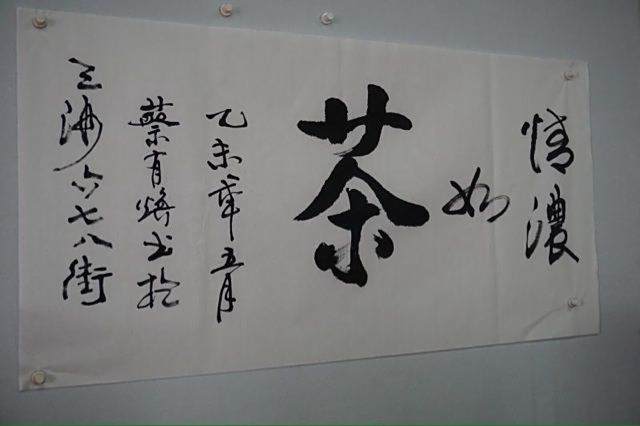 情濃
如
茶
乙未年五月
蔡有焕书於
三沙六七八街